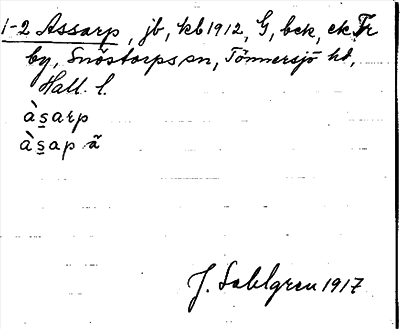 1-2 Assarp, jb, kb 1912, G, bck, ek Fr
by, Snöstorps sn, Tönnersjö hd,
Hall. l.
às̲arp
às̲ap ã
J. Sahlgren 1917